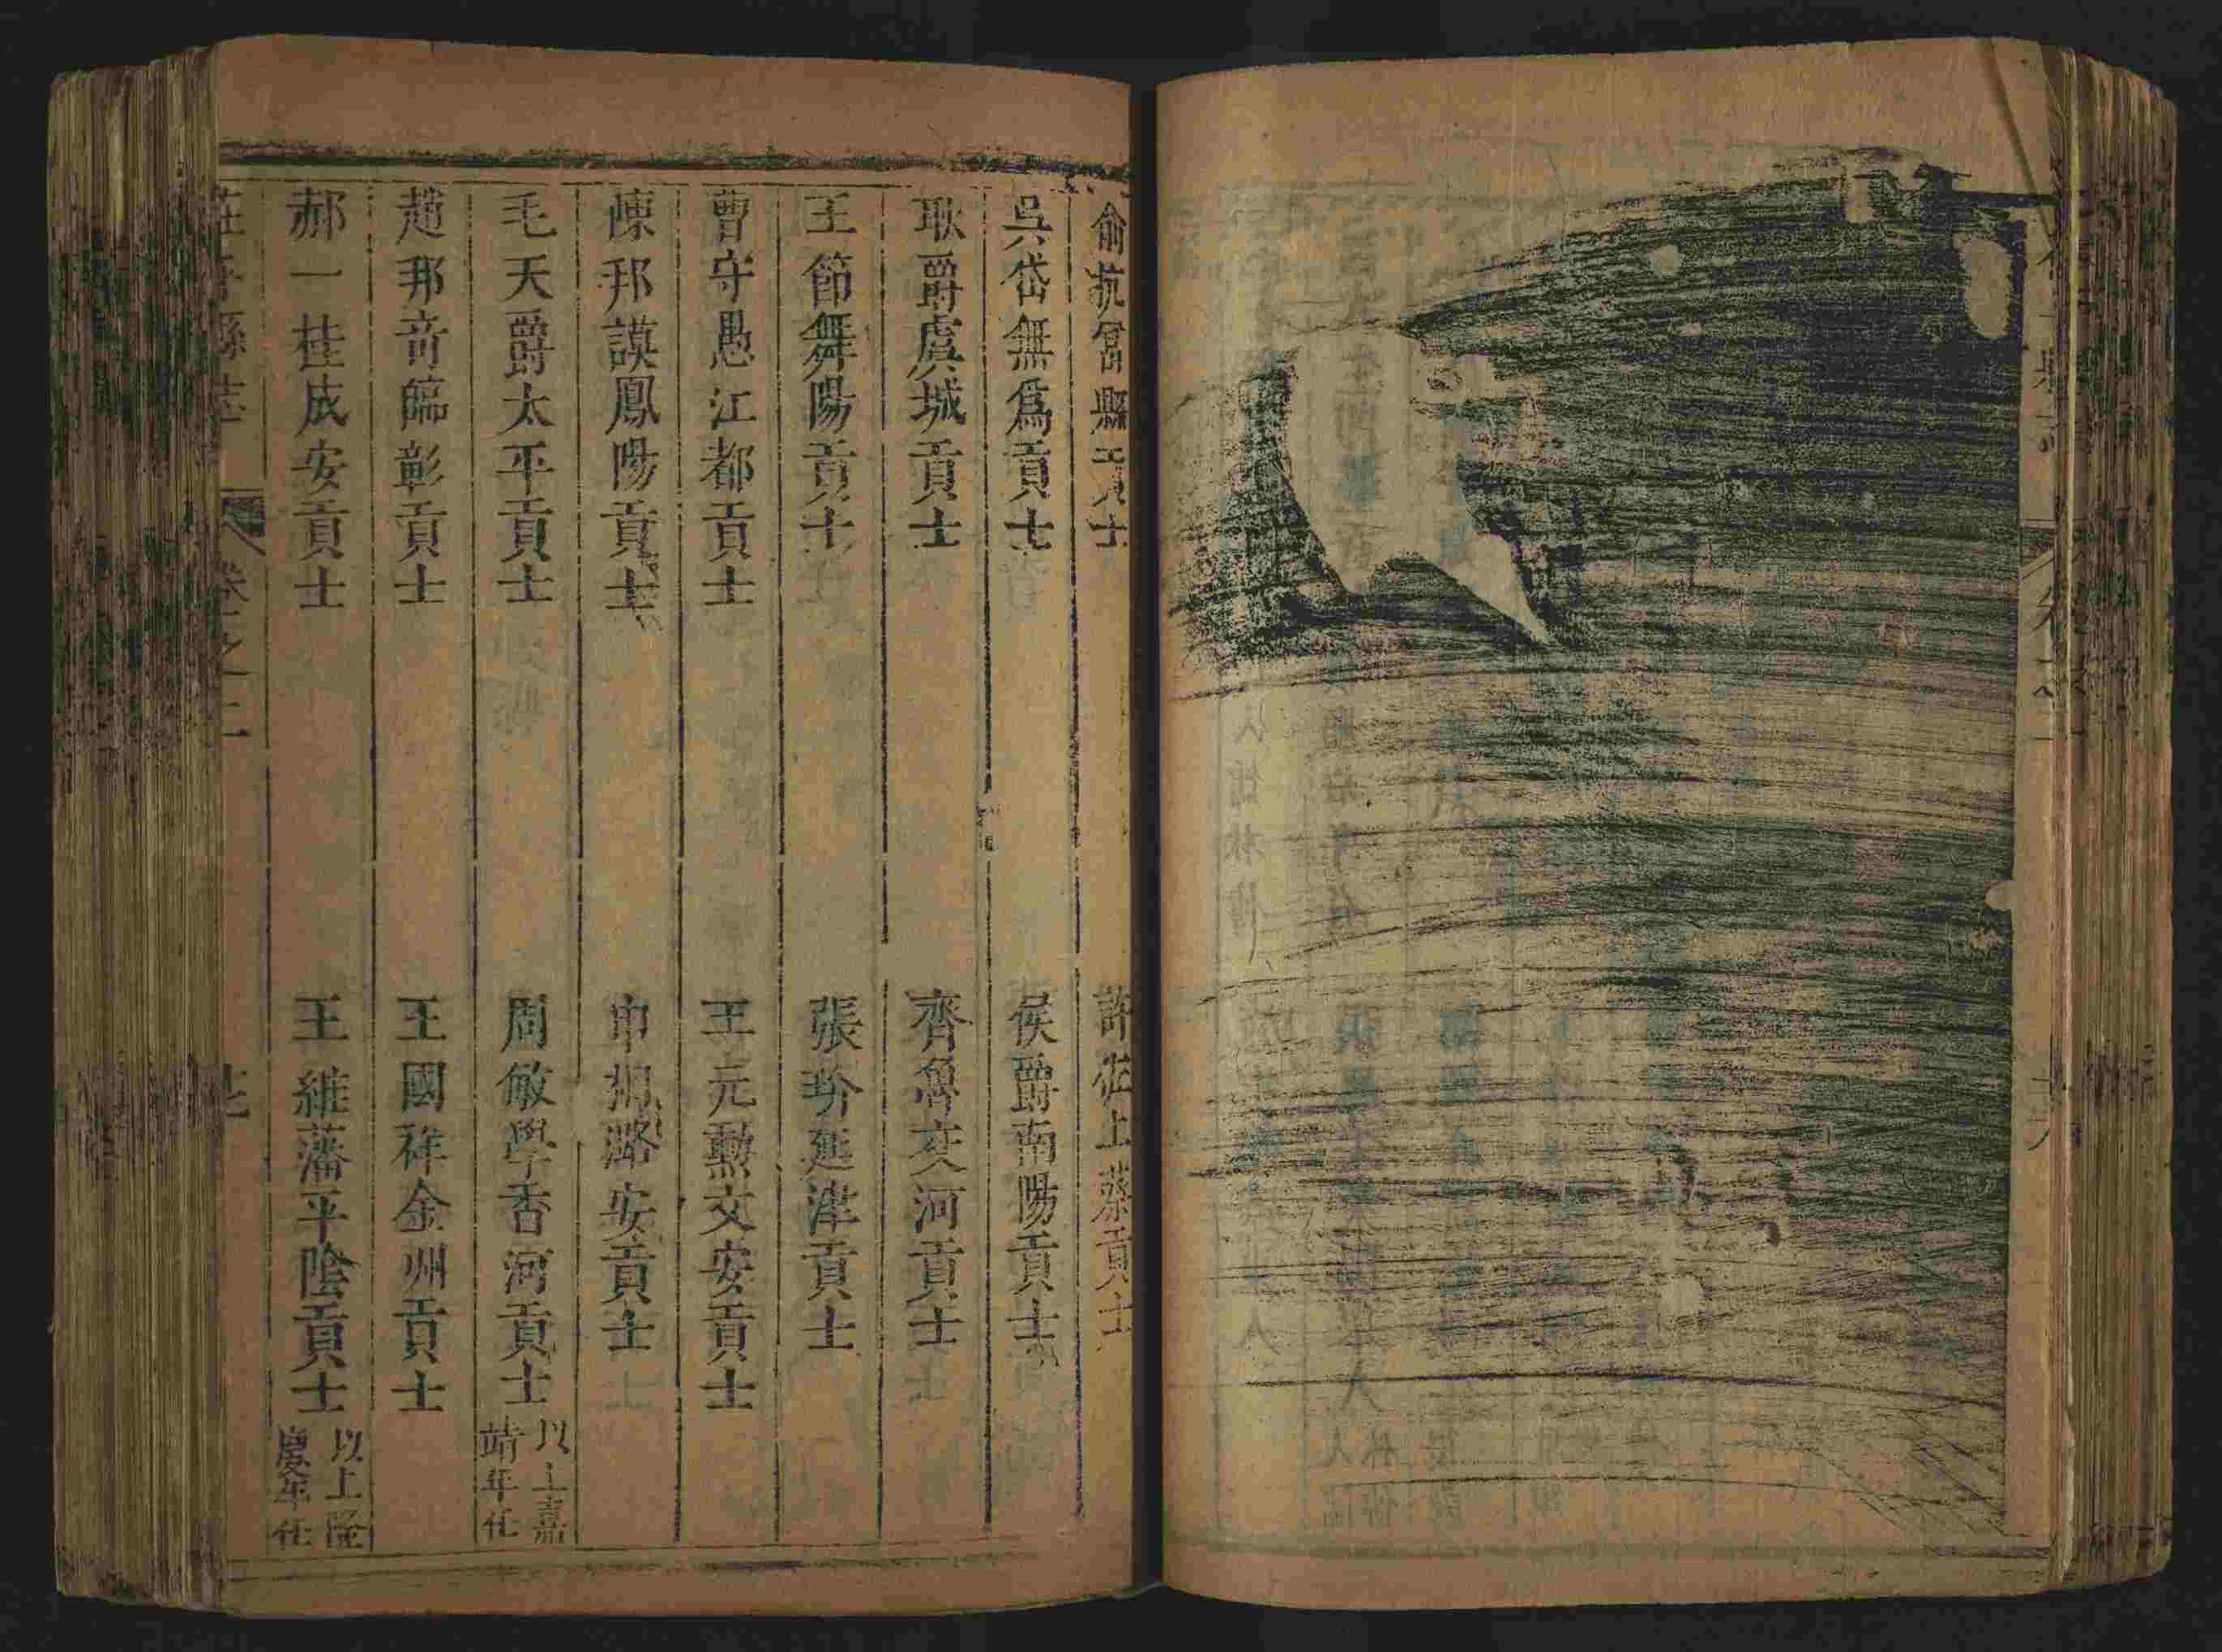 俞抗冨縣貢士
許佐上蔡貢士
吳岱無爲貢士
侯爵南陽貢士
耿爵虞城貢士
齊魯交河貢士
王節舞陽貢士
張玠延津貢士
曹守愚江都貢士
王元勲文安貢士
陳邦謨鳳陽貢士
申潞安貢士
毛天爵太平貢士
周敏學香河貢士
以上嘉
靖年任
趙邦奇臨彰貢士
王國祥金州貢士
郝一桂成安貢士
王維藩平陰貢士
以上隆
慶年任
縣志
卷之二